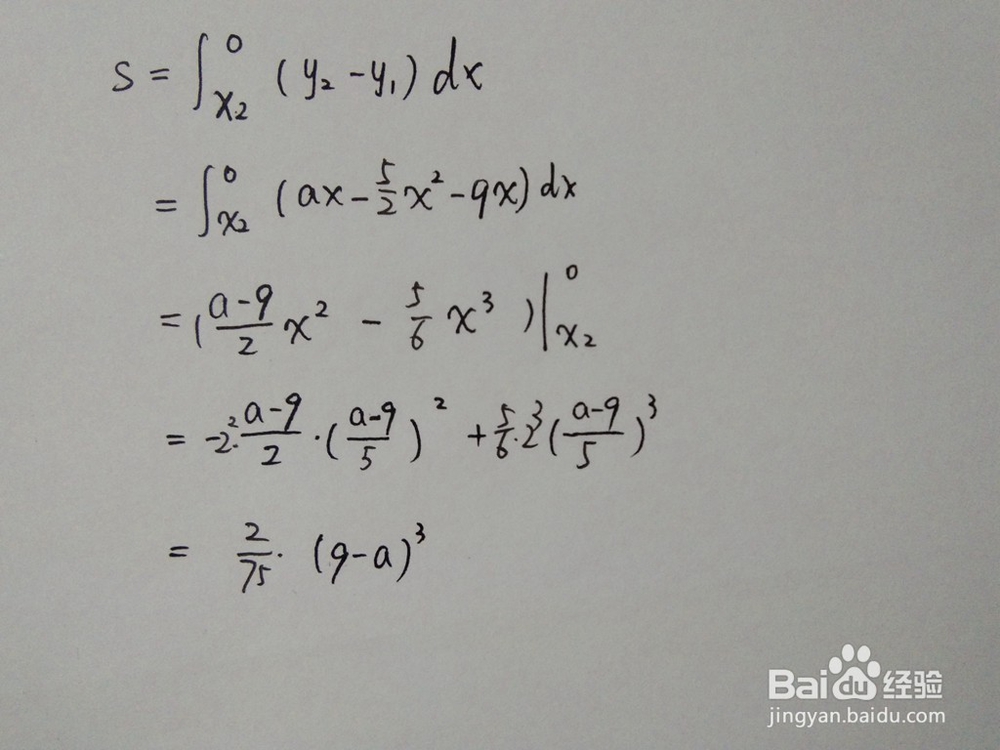 S = ∫_{x₂}^{0} (y₂ - y₁) dx
= ∫_{x₂}^{0} (ax - \frac{5}{2}x² - 9x) dx
= (\frac{a-9}{2}x² - \frac{5}{6}x³)|_{x₂}^{0}
= -2²·\frac{a-9}{2}·(\frac{a-9}{5})² + \frac{5}{6}·2³(\frac{a-9}{5})³
= \frac{2}{75}·(9-a)³
Baidu经验
jingyan.baidu.com